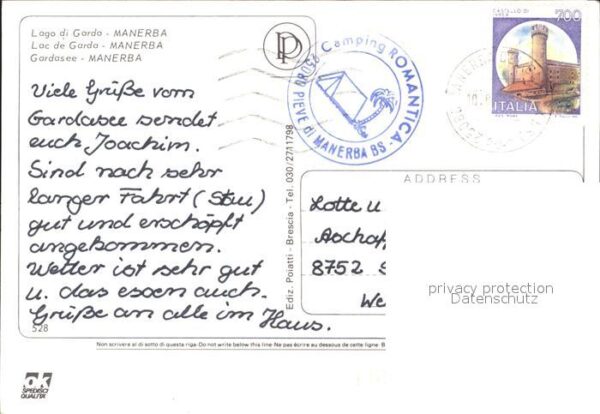 Lago di Garda - MANERBA
Lac de Garda - MANERBA
Gardasee - MANERBA
Viele Grüße vom
Gardasee sendet
euch Joachim.
Sind nach sehr
langer Fahrt (Stau)
gut und erschöpft
angekommen.
Wetter ist sehr gut
u. das essen auch.
Grüße an alle im Haus.
528
Ediz. Poiatti - Brescia - Tel. 030/2711798
Camping ROMANTICA
25080 PIEVE di MANERBA BS.
CASTELLO DI
IVREA
700
ITALIA
ADDRESS
Lotte u
Aschaf
8752 S
We
privacy protection
Datenschutz
Non scrivere al di sotto di questa riga-Do not write below this line-Ne pas écrire au dessous de cette ligne
ok
SPEDISCI
QUALITÀ